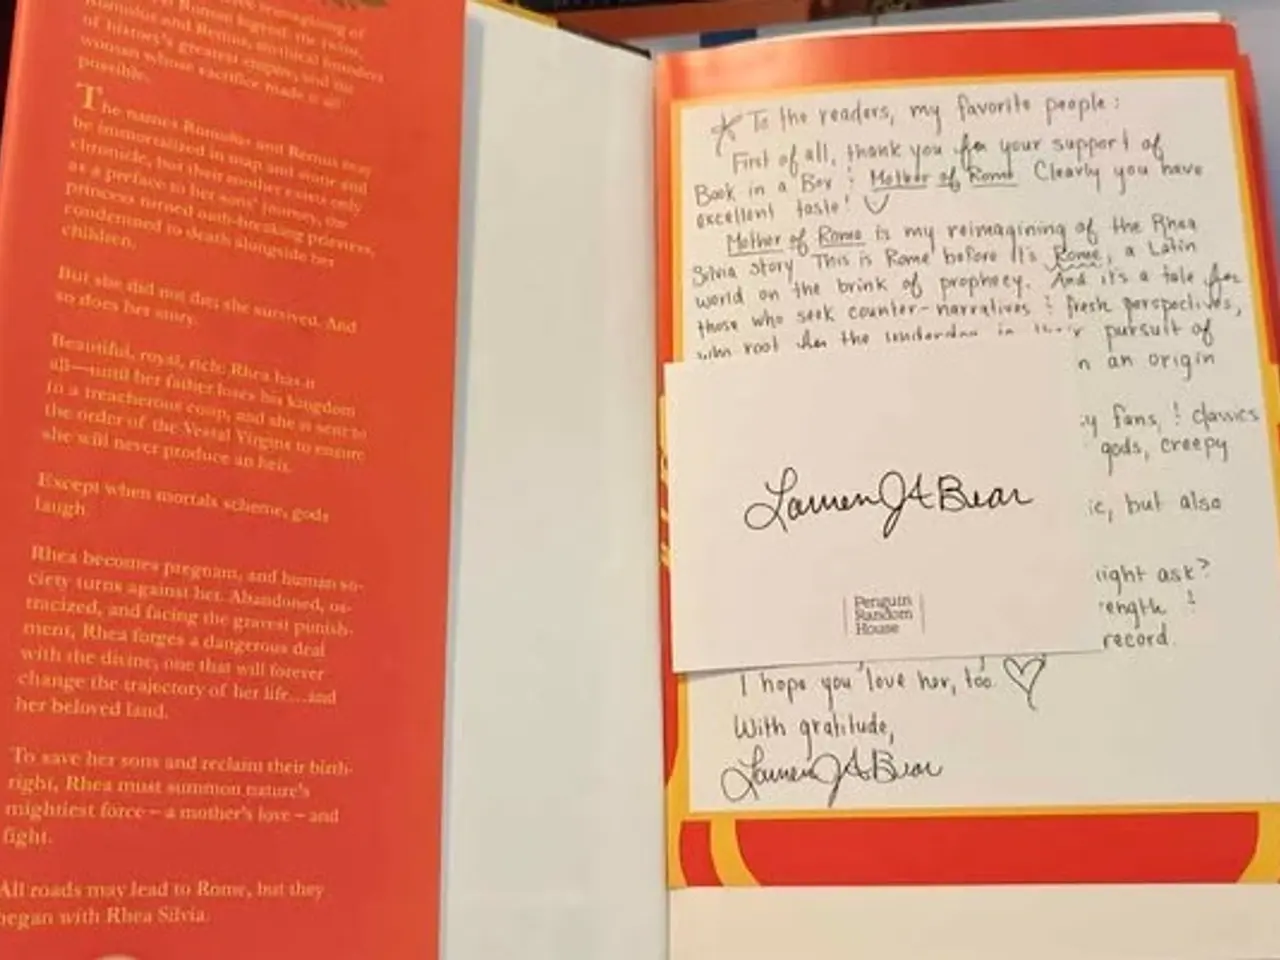 reimagining of
Roman legend: the twins,
Romulus and Remus, mythical founders
of history's greatest empire, and the
woman whose sacrifice made it all
possible.
The names Romulus and Remus may
be immortalized in map and stone and
chronicle, but their mother exists only
as a preface to her sons' journey, the
princess turned oath-breaking priestess,
condemned to death alongside her
children.
But she did not die; she survived. And
so does her story.
Beautiful, royal, rich: Rhea has it
all—until her father loses his kingdom
in a treacherous coup, and she is sent to
the order of the Vestal Virgins to ensure
she will never produce an heir.
Except when mortals scheme, gods
laugh.
Rhea becomes pregnant, and human so-
ciety turns against her. Abandoned, os-
tracized, and facing the gravest punish-
ment, Rhea forges a dangerous deal
with the divine, one that will forever
change the trajectory of her life...and
her beloved land.
To save her sons and reclaim their birth-
right, Rhea must summon nature's
mightiest force – a mother's love – and
fight.
All roads may lead to Rome, but they
began with Rhea Silvia.
To the readers, my favorite people:
First of all, thank you for your support of
Book in a Box & Mother of Rome. Clearly you have
excellent taste!
Mother of Rome is my reimagining of the Rhea
Silvia story. This is Rome before it's Rome, a Latin
world on the brink of prophecy. And it's a tale for
those who seek counter-narratives & fresh perspectives,
who root for the underdog in their pursuit of
an origin
fans, & classics
gods, creepy
but also
ask?
&
record.
I hope you love her, too.
With gratitude,
Lauren J. A. Bear
Lauren J. A. Bear
Penguin
Random
House